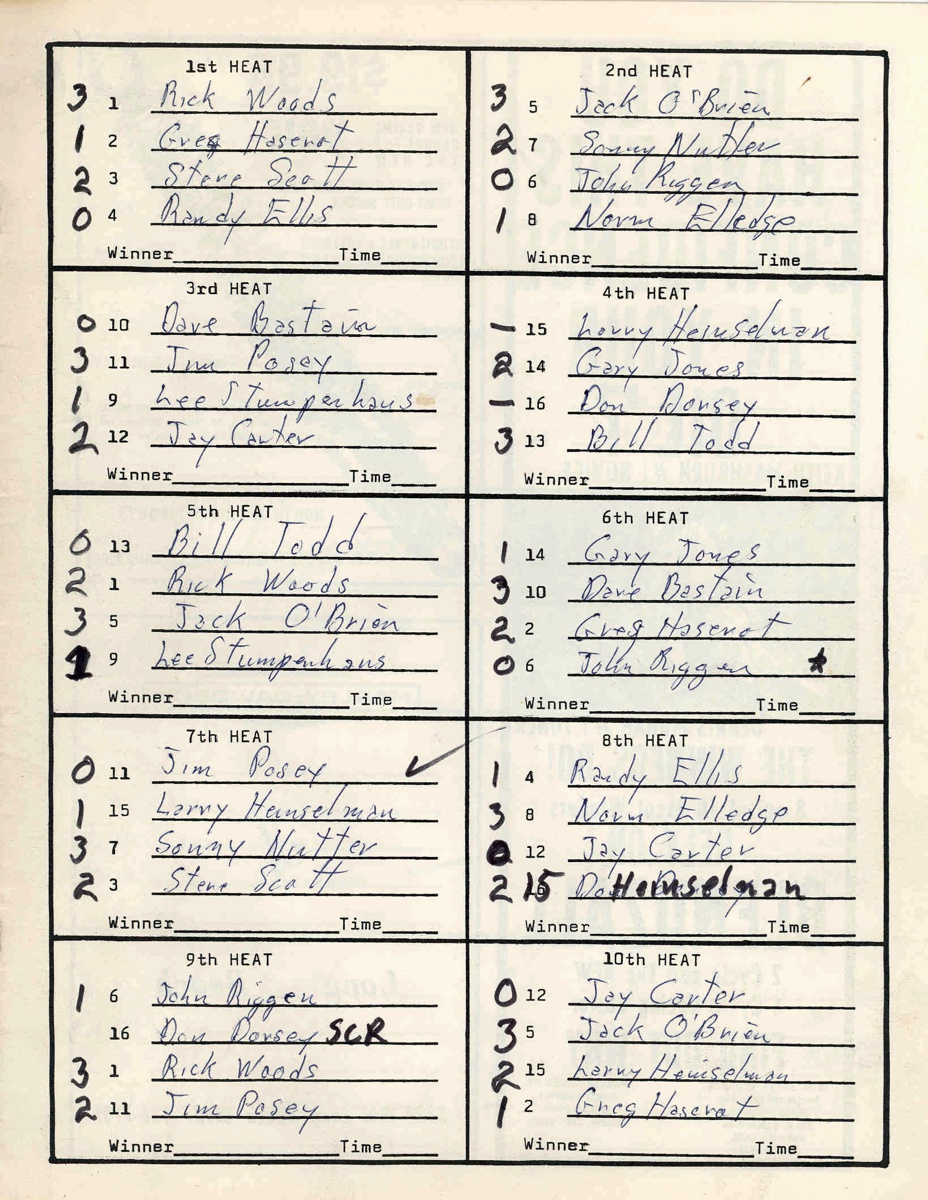 1st HEAT
3 1 Rick Woods
1 2 Greg Haserot
2 3 Steve Scott
0 4 Randy Ellis
Winner Time
2nd HEAT
3 5 Jack O'Brien
2 7 Sonny Nutter
0 6 John Riggen
1 8 Norm Elledge
Winner Time
3rd HEAT
0 10 Dave Bastain
3 11 Jim Posey
1 9 Lee Stumpenhaus
2 12 Jay Carter
Winner Time
4th HEAT
– 15 Larry Heinselman
2 14 Gary Jones
– 16 Don Dorsey
3 13 Bill Todd
Winner Time
5th HEAT
0 13 Bill Todd
2 1 Rick Woods
3 5 Jack O'Brien
1 9 Lee Stumpenhaus
Winner Time
6th HEAT
1 14 Gary Jones
3 10 Dave Bastain
2 2 Greg Haserot
0 6 John Riggen ★
Winner Time
7th HEAT
0 11 Jim Posey ✓
1 15 Larry Heinselman
3 7 Sonny Nutter
2 3 Steve Scott
Winner Time
8th HEAT
1 4 Randy Ellis
3 8 Norm Elledge
0 12 Jay Carter
2 15 Heinselman
Winner Time
9th HEAT
1 6 John Riggen
16 Don Dorsey SCR
3 1 Rick Woods
2 11 Jim Posey
Winner Time
10th HEAT
0 12 Jay Carter
3 5 Jack O'Brien
2 15 Larry Heinselman
1 2 Greg Haserot
Winner Time